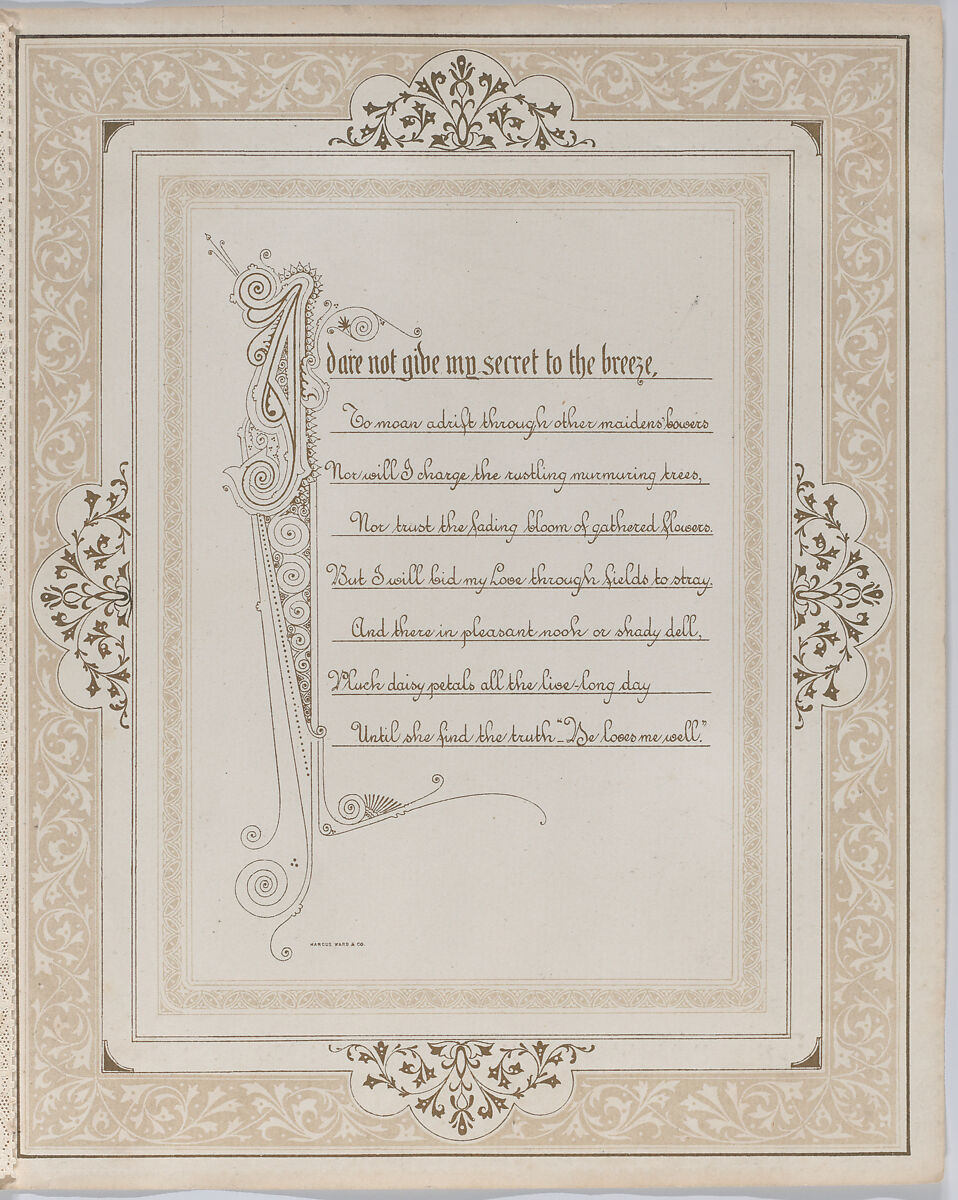 I dare not give my secret to the breeze,
To moan adrift through other maidens' bowers
Nor will I charge the rustling murmuring trees,
Nor trust the fading bloom of gathered flowers.
But I will bid my Love through fields to stray,
And there in pleasant nook or shady dell,
Pluck daisy petals all the live-long day
Until she find the truth_"He loves me well."
MARCUS WARD & CO.